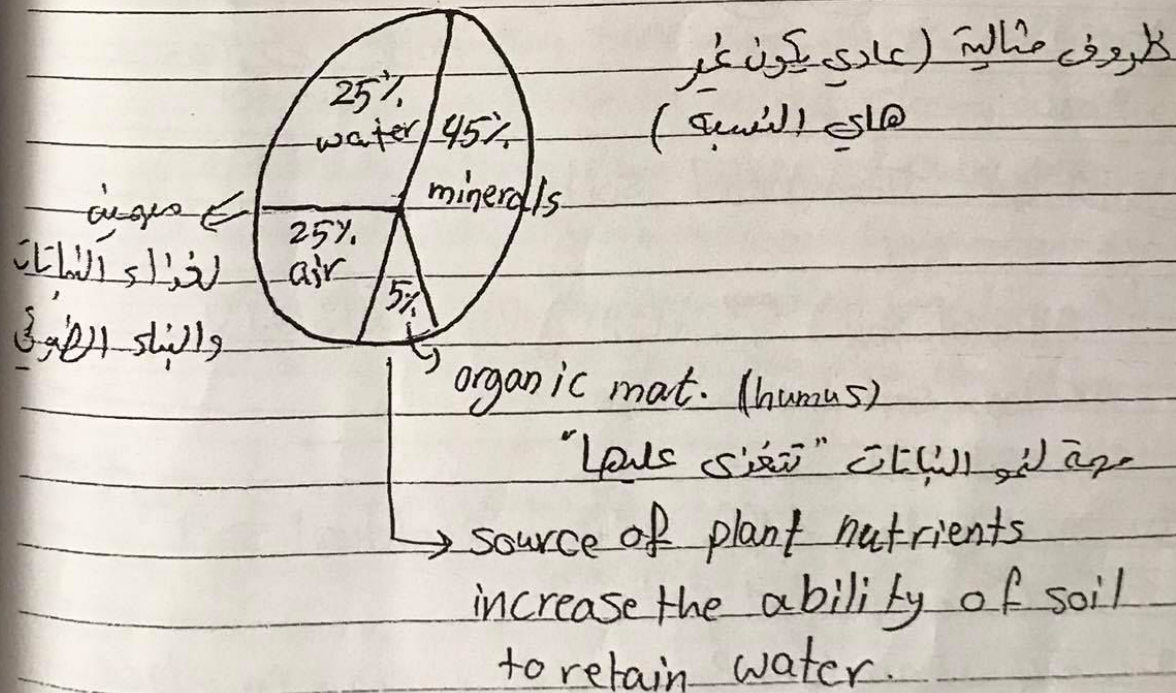 ظروف مثالية (عادي يكون غير
هاي النسبة)
25% water
45% minerals
25% air
5%
مهمين
لغذاء النباتات
والبناء الضوئي
organic mat. (humus)
مهمة لنمو النباتات "تتغذى عليها"
source of plant nutrients
increase the ability of soil
to retain water.